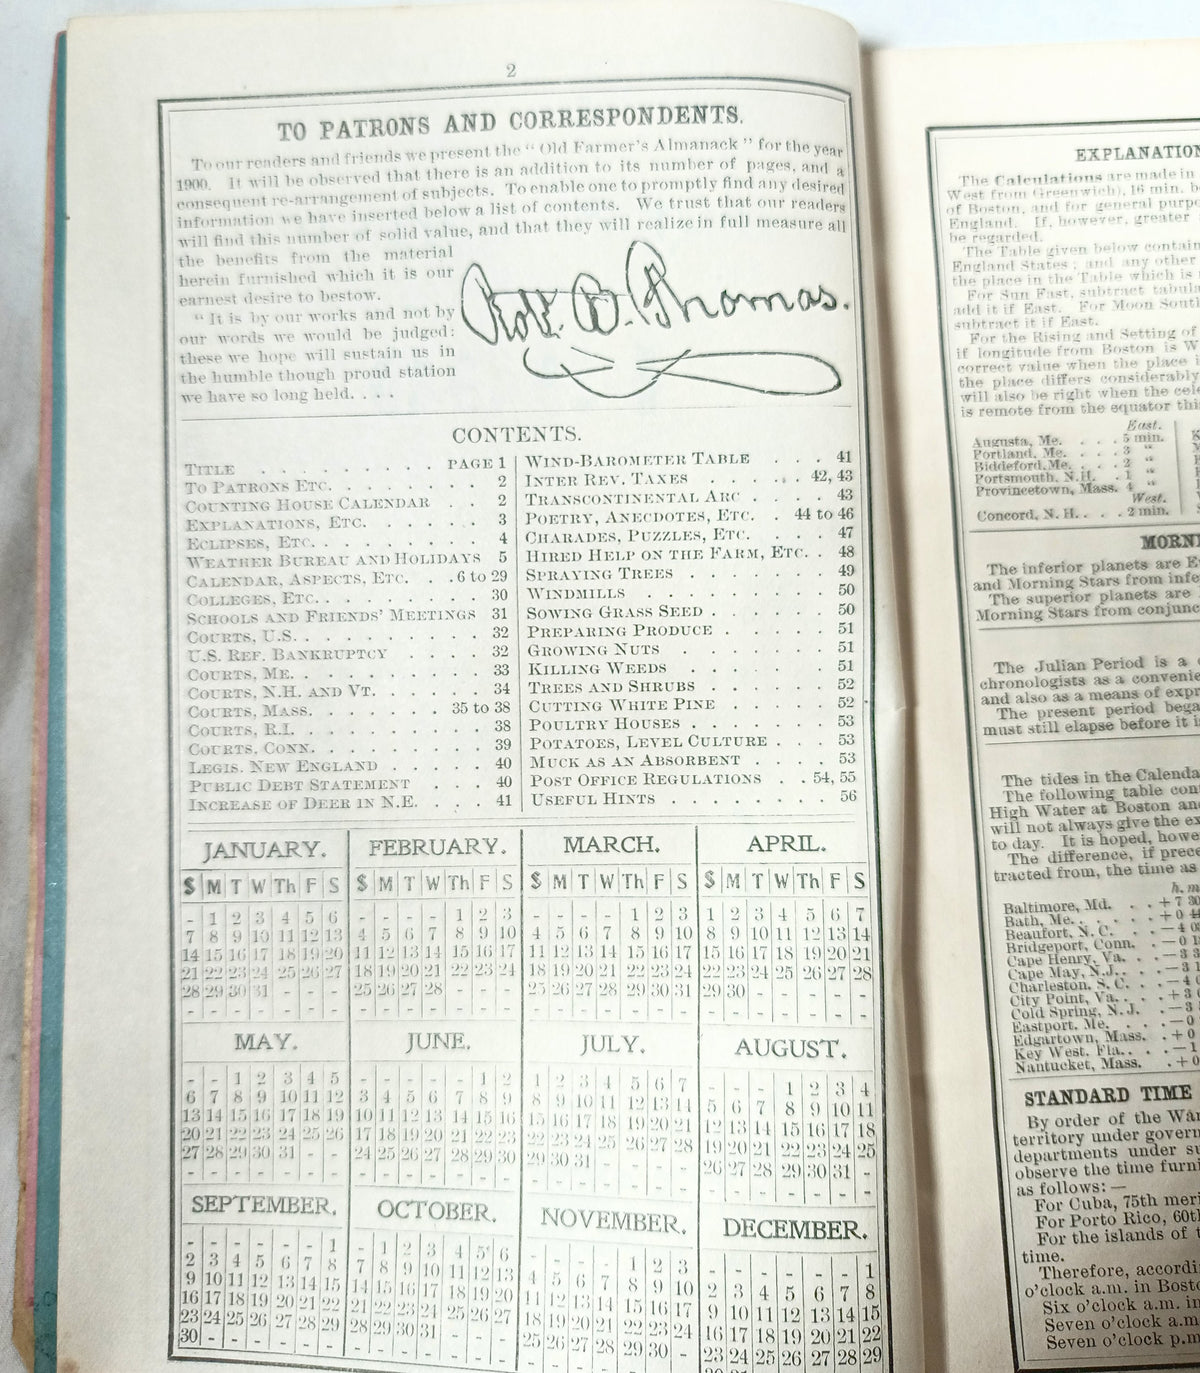 2
TO PATRONS AND CORRESPONDENTS.
To our readers and friends we present the "Old Farmer's Almanack" for the year
1900. It will be observed that there is an addition to its number of pages, and a
consequent re-arrangement of subjects. To enable one to promptly find any desired
information we have inserted below a list of contents. We trust that our readers
will find this number of solid value, and that they will realize in full measure all
the benefits from the material
herein furnished which it is our
earnest desire to bestow.
"It is by our works and not by
our words we would be judged:
these we hope will sustain us in
the humble though proud station
we have so long held. . . .
Robt. B. Thomas.
CONTENTS.
TITLE . . . . . . . . . PAGE 1
TO PATRONS ETC. . . . . . . . 2
COUNTING HOUSE CALENDAR . . 2
EXPLANATIONS, ETC. . . . . . 3
ECLIPSES, ETC. . . . . . . . 4
WEATHER BUREAU AND HOLIDAYS 5
CALENDAR, ASPECTS, ETC. . . 6 to 29
COLLEGES, ETC. . . . . . . . 30
SCHOOLS AND FRIENDS' MEETINGS 31
COURTS, U.S. . . . . . . . . 32
U.S. REF. BANKRUPTCY . . . . 32
COURTS, ME. . . . . . . . . 33
COURTS, N.H. AND VT. . . . . . 34
COURTS, MASS. . . . . . . 35 to 38
COURTS, R.I. . . . . . . . . 38
COURTS, CONN. . . . . . . . 39
LEGIS. NEW ENGLAND . . . . . 40
PUBLIC DEBT STATEMENT . . . 40
INCREASE OF DEER IN N.E. . . . 41
WIND-BAROMETER TABLE . . . 41
INTER REV. TAXES . . . . . 42, 43
TRANSCONTINENTAL ARC . . . . 43
POETRY, ANECDOTES, ETC. . 44 to 46
CHARADES, PUZZLES, ETC. . . . 47
HIRED HELP ON THE FARM, ETC. . 48
SPRAYING TREES . . . . . . . 49
WINDMILLS . . . . . . . . . 50
SOWING GRASS SEED . . . . . . 50
PREPARING PRODUCE . . . . . 51
GROWING NUTS . . . . . . . 51
KILLING WEEDS . . . . . . . 51
TREES AND SHRUBS . . . . . . 52
CUTTING WHITE PINE . . . . . 52
POULTRY HOUSES . . . . . . . 53
POTATOES, LEVEL CULTURE . . . 53
MUCK AS AN ABSORBENT . . . . 53
POST OFFICE REGULATIONS . . 54, 55
USEFUL HINTS . . . . . . . . 56
JANUARY. FEBRUARY. MARCH. APRIL.
S M T W Th F S S M T W Th F S S M T W Th F S S M T W Th F S
- 1 2 3 4 5 6 - - - - 1 2 3 - - - - 1 2 3 1 2 3 4 5 6 7
7 8 9 10 11 12 13 4 5 6 7 8 9 10 4 5 6 7 8 9 10 8 9 10 11 12 13 14
14 15 16 17 18 19 20 11 12 13 14 15 16 17 11 12 13 14 15 16 17 15 16 17 18 19 20 21
21 22 23 24 25 26 27 18 19 20 21 22 23 24 18 19 20 21 22 23 24 22 23 24 25 26 27 28
28 29 30 31 - - - 25 26 27 28 - - - 25 26 27 28 29 30 31 29 30 - - - - -
- - - - - - - - - - - - - - - - - - - - - - - - - - - -
MAY. JUNE. JULY. AUGUST.
- - 1 2 3 4 5 - - - - - 1 2 1 2 3 4 5 6 7 - - - 1 2 3 4
6 7 8 9 10 11 12 3 4 5 6 7 8 9 8 9 10 11 12 13 14 5 6 7 8 9 10 11
13 14 15 16 17 18 19 10 11 12 13 14 15 16 15 16 17 18 19 20 21 12 13 14 15 16 17 18
20 21 22 23 24 25 26 17 18 19 20 21 22 23 22 23 24 25 26 27 28 19 20 21 22 23 24 25
27 28 29 30 31 - - 24 25 26 27 28 29 30 29 30 31 - - - - 26 27 28 29 30 31 -
- - - - - - - - - - - - - - - - - - - - - - - - - - - -
SEPTEMBER. OCTOBER. NOVEMBER. DECEMBER.
- - - - - - 1 - 1 2 3 4 5 6 - - - - 1 2 3 - - - - - - 1
2 3 4 5 6 7 8 7 8 9 10 11 12 13 4 5 6 7 8 9 10 2 3 4 5 6 7 8
9 10 11 12 13 14 15 14 15 16 17 18 19 20 11 12 13 14 15 16 17 9 10 11 12 13 14 15
16 17 18 19 20 21 22 21 22 23 24 25 26 27 18 19 20 21 22 23 24 16 17 18 19 20 21 22
23 24 25 26 27 28 29 28 29 30 31 - - - 25 26 27 28 29 30 - 23 24 25 26 27 28 29
30 - - - - - -
EXPLANATION
The Calculations are made in
West from Greenwich), 16 min. b
of Boston, and for general purpo
England. If, however, greater
be regarded.
The Table given below contain
England States; and any other
the place in the Table which is
For Sun Fast, subtract tabula
add it if East. For Moon South
subtract it if East.
For the Rising and Setting of
if longitude from Boston is W
correct value when the place i
the place differs considerably
will also be right when the cele
is remote from the equator thi
East.
Augusta, Me. . . . 5 min.
Portland, Me. . . . 3 "
Biddeford, Me. . . . 2 "
Portsmouth, N.H. . 1 "
Provincetown, Mass. 4 "
West.
Concord, N. H. . . . 2 min.
MORNI
The inferior planets are
and Morning Stars from infe
The superior planets are
Morning Stars from conjunc
The Julian Period is a
chronologists as a convenie
and also as a means of expr
The present period bega
must still elapse before it i
The tides in the Calenda
The following table cont
High Water at Boston and
will not always give the ex
to day. It is hoped, howe
The difference, if prece
tracted from, the time as
h. m
Baltimore, Md. . . + 7 30
Bath, Me. . . . . . + 0
Beaufort, N. C. . . — 4
Bridgeport, Conn. . — 0
Cape Henry, Va. . . — 3
Cape May, N.J. . . . — 3
Charleston, S. C. . . — 4
City Point, Va. . . . + 3
Cold Spring, N. J. . — 3
Eastport, Me. . . . — 0
Edgartown, Mass. . + 0
Key West, Fla. . . . — 1
Nantucket, Mass. . + 0
STANDARD TIME
By order of the War
territory under govern
departments under su
observe the time furni
as follows: —
For Cuba, 75th meri
For Porto Rico, 60th
For the islands of t
time.
Therefore, accordi
o'clock a.m. in Bosto
Six o'clock a.m. in
Seven o'clock a.m
Seven o'clock p.m